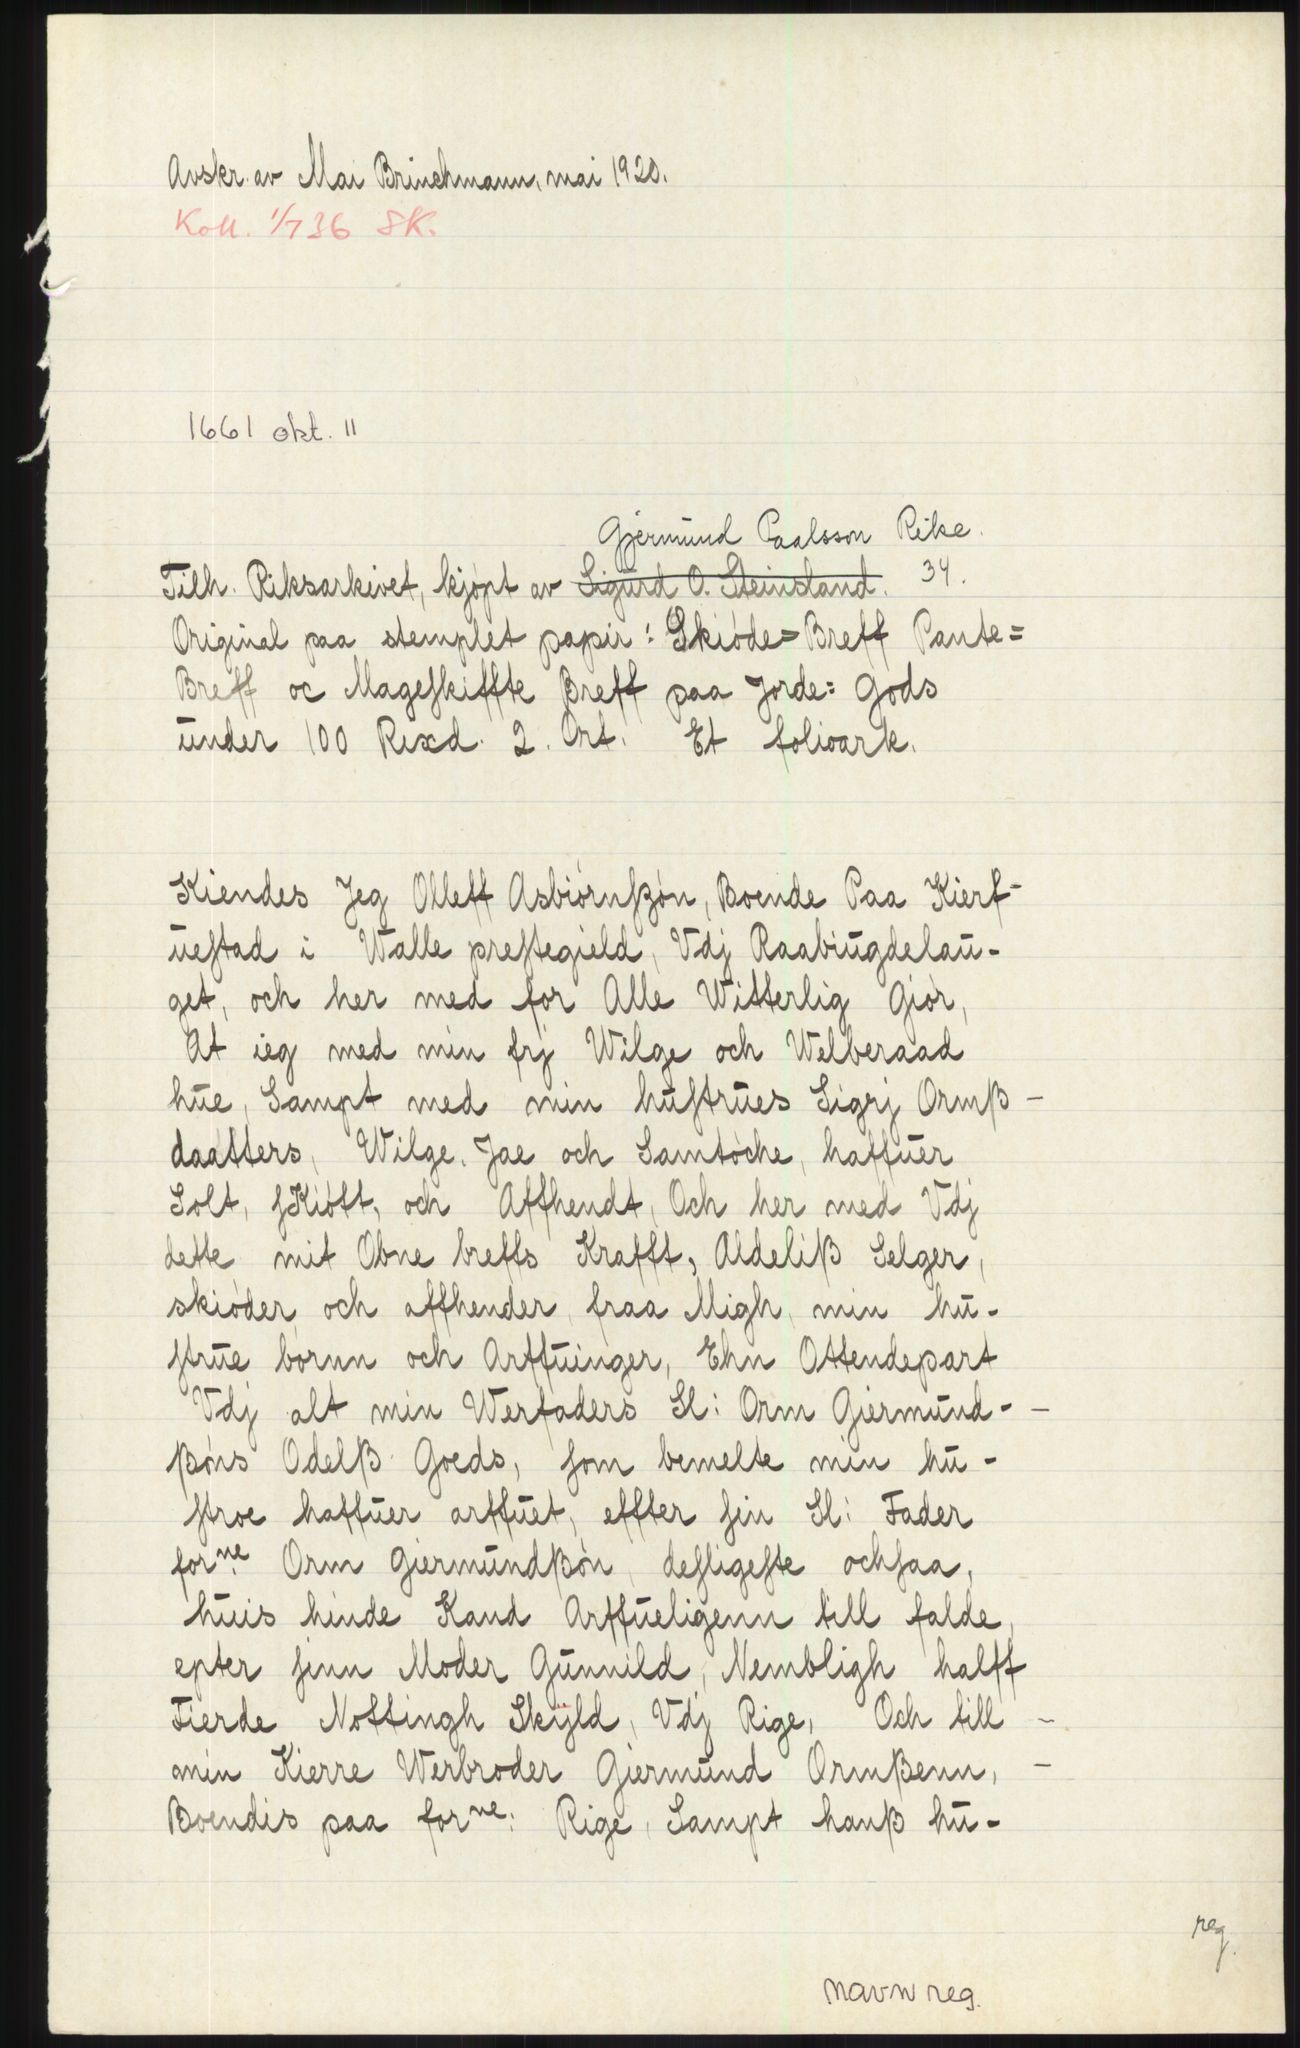 Avskr. av Mai Brinchmann, mai 1920.
Koll. 1/7 36 SK.
1661 okt. 11
Gjermund Paalsson Rike.
Tilh. Riksarkivet, kjøpt av Sigurd O. Steinsland. 34.
Original paa stemplet papir: Skiøde= Breff Pante=
Breff oc Mageskiffte Breff paa Jorde= Gods
under 100 Rixd. 2. Ort. Et folioark.
Kiendes Jeg Olleff Asbiørnszøn, Boende Paa Kierf-
uestad i Walle prestegield, Vdj Raabiugdelau-
get, och her med for Alle Witterlig Giør,
At ieg med min frj Wilge och Welberaad
hue, Sampt med min hustrues Sigrj Ormß -
daatters, Wilge. Jae och Samtøche, haffuer
Solt, sKiøtt, och Affhendt, Och her med Vdj
dette mit Obne breffs Krafft, Aldeliß Selger,
skiøder och affhender, fraa Migh, min hu-
strue børnn och Arffuinger, Ehn Ottendepart
Vdj alt min Werfaders Sl: Orm Giermund- -
ßøns Odelß Goeds, som bemelte min hu-
stroe haffuer arffuet, effter sin Sl: Fader
forne: Orm Giermundßøn, desligeste ochsaa,
huis hinde Kand Arffueligenn till falde,
epter sinn Moder Gunnild, Nembligh halff
Fierde Nottingh Skÿld, Vdj Rige, Och till -
min Kierre Werbroder Giermund Ormßenn, -
Boendis paa forne: Rige, Sampt hanß hu-
reg.
navnreg.